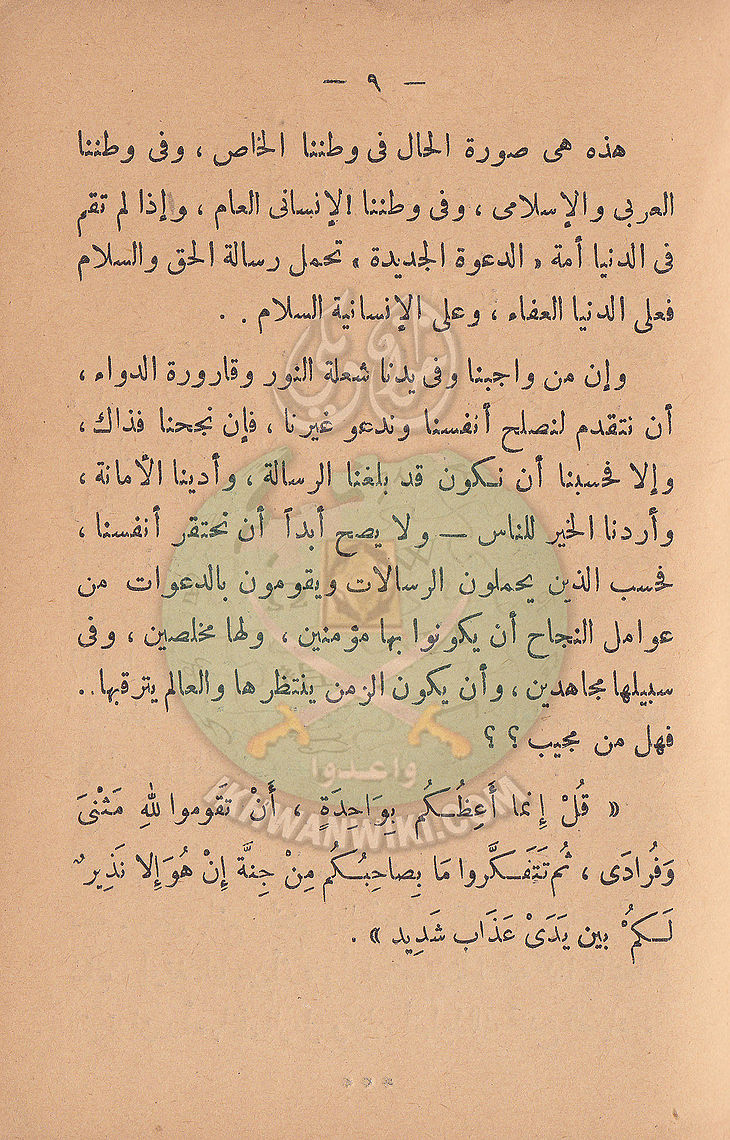 — ٩ —
هذه هى صورة الحال فى وطننا الخاص ، وفى وطننا
العربى والإسلامى ، وفى وطننا الإنسانى العام ، وإذا لم تقم
فى الدنيا أمة « الدعوة الجديدة » تحمل رسالة الحق والسلام
فعلى الدنيا العفاء ، وعلى الإنسانية السلام . .
وإن من واجبنا وفى يدنا شعلة النور وقارورة الدواء ،
أن نتقدم لنصلح أنفسنا وندعو غيرنا ، فإن نجحنا فذاك ،
وإلا فحسبنا أن نكون قد بلغنا الرسالة ، وأدينا الأمانة ،
وأردنا الخير للناس — ولا يصح أبداً أن نحتقر أنفسنا ،
فحسب الذين يحملون الرسالات ويقومون بالدعوات من
عوامل النجاح أن يكونوا بها مؤمنين ، ولها مخلصين ، وفى
سبيلها مجاهدين ، وأن يكون الزمن ينتظرها والعالم يترقبها . .
فهل من مجيب ؟ ؟
واعدوا
IKHWANWIKI.COM
« قُلْ إِنما أَعِظُكُم بِوَاحِدَةٍ ، أَنْ تَقوموا للهِ مَثْنَىَ
وَفُرادَى ، ثُم تَتَفَكَّروا مَا بِصاحِبُكُم مِنْ جِنَّة إِنْ هُوَ إِلا نَذِيرٌ
لَكمُ بين يَدَىْ عَذَاب شَدِيد » .
* * *